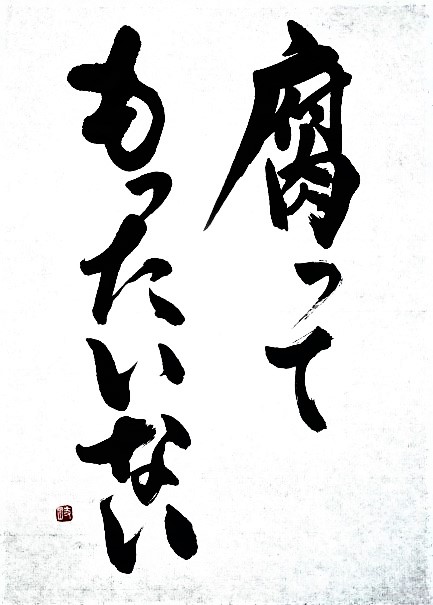 腐って
もったいない